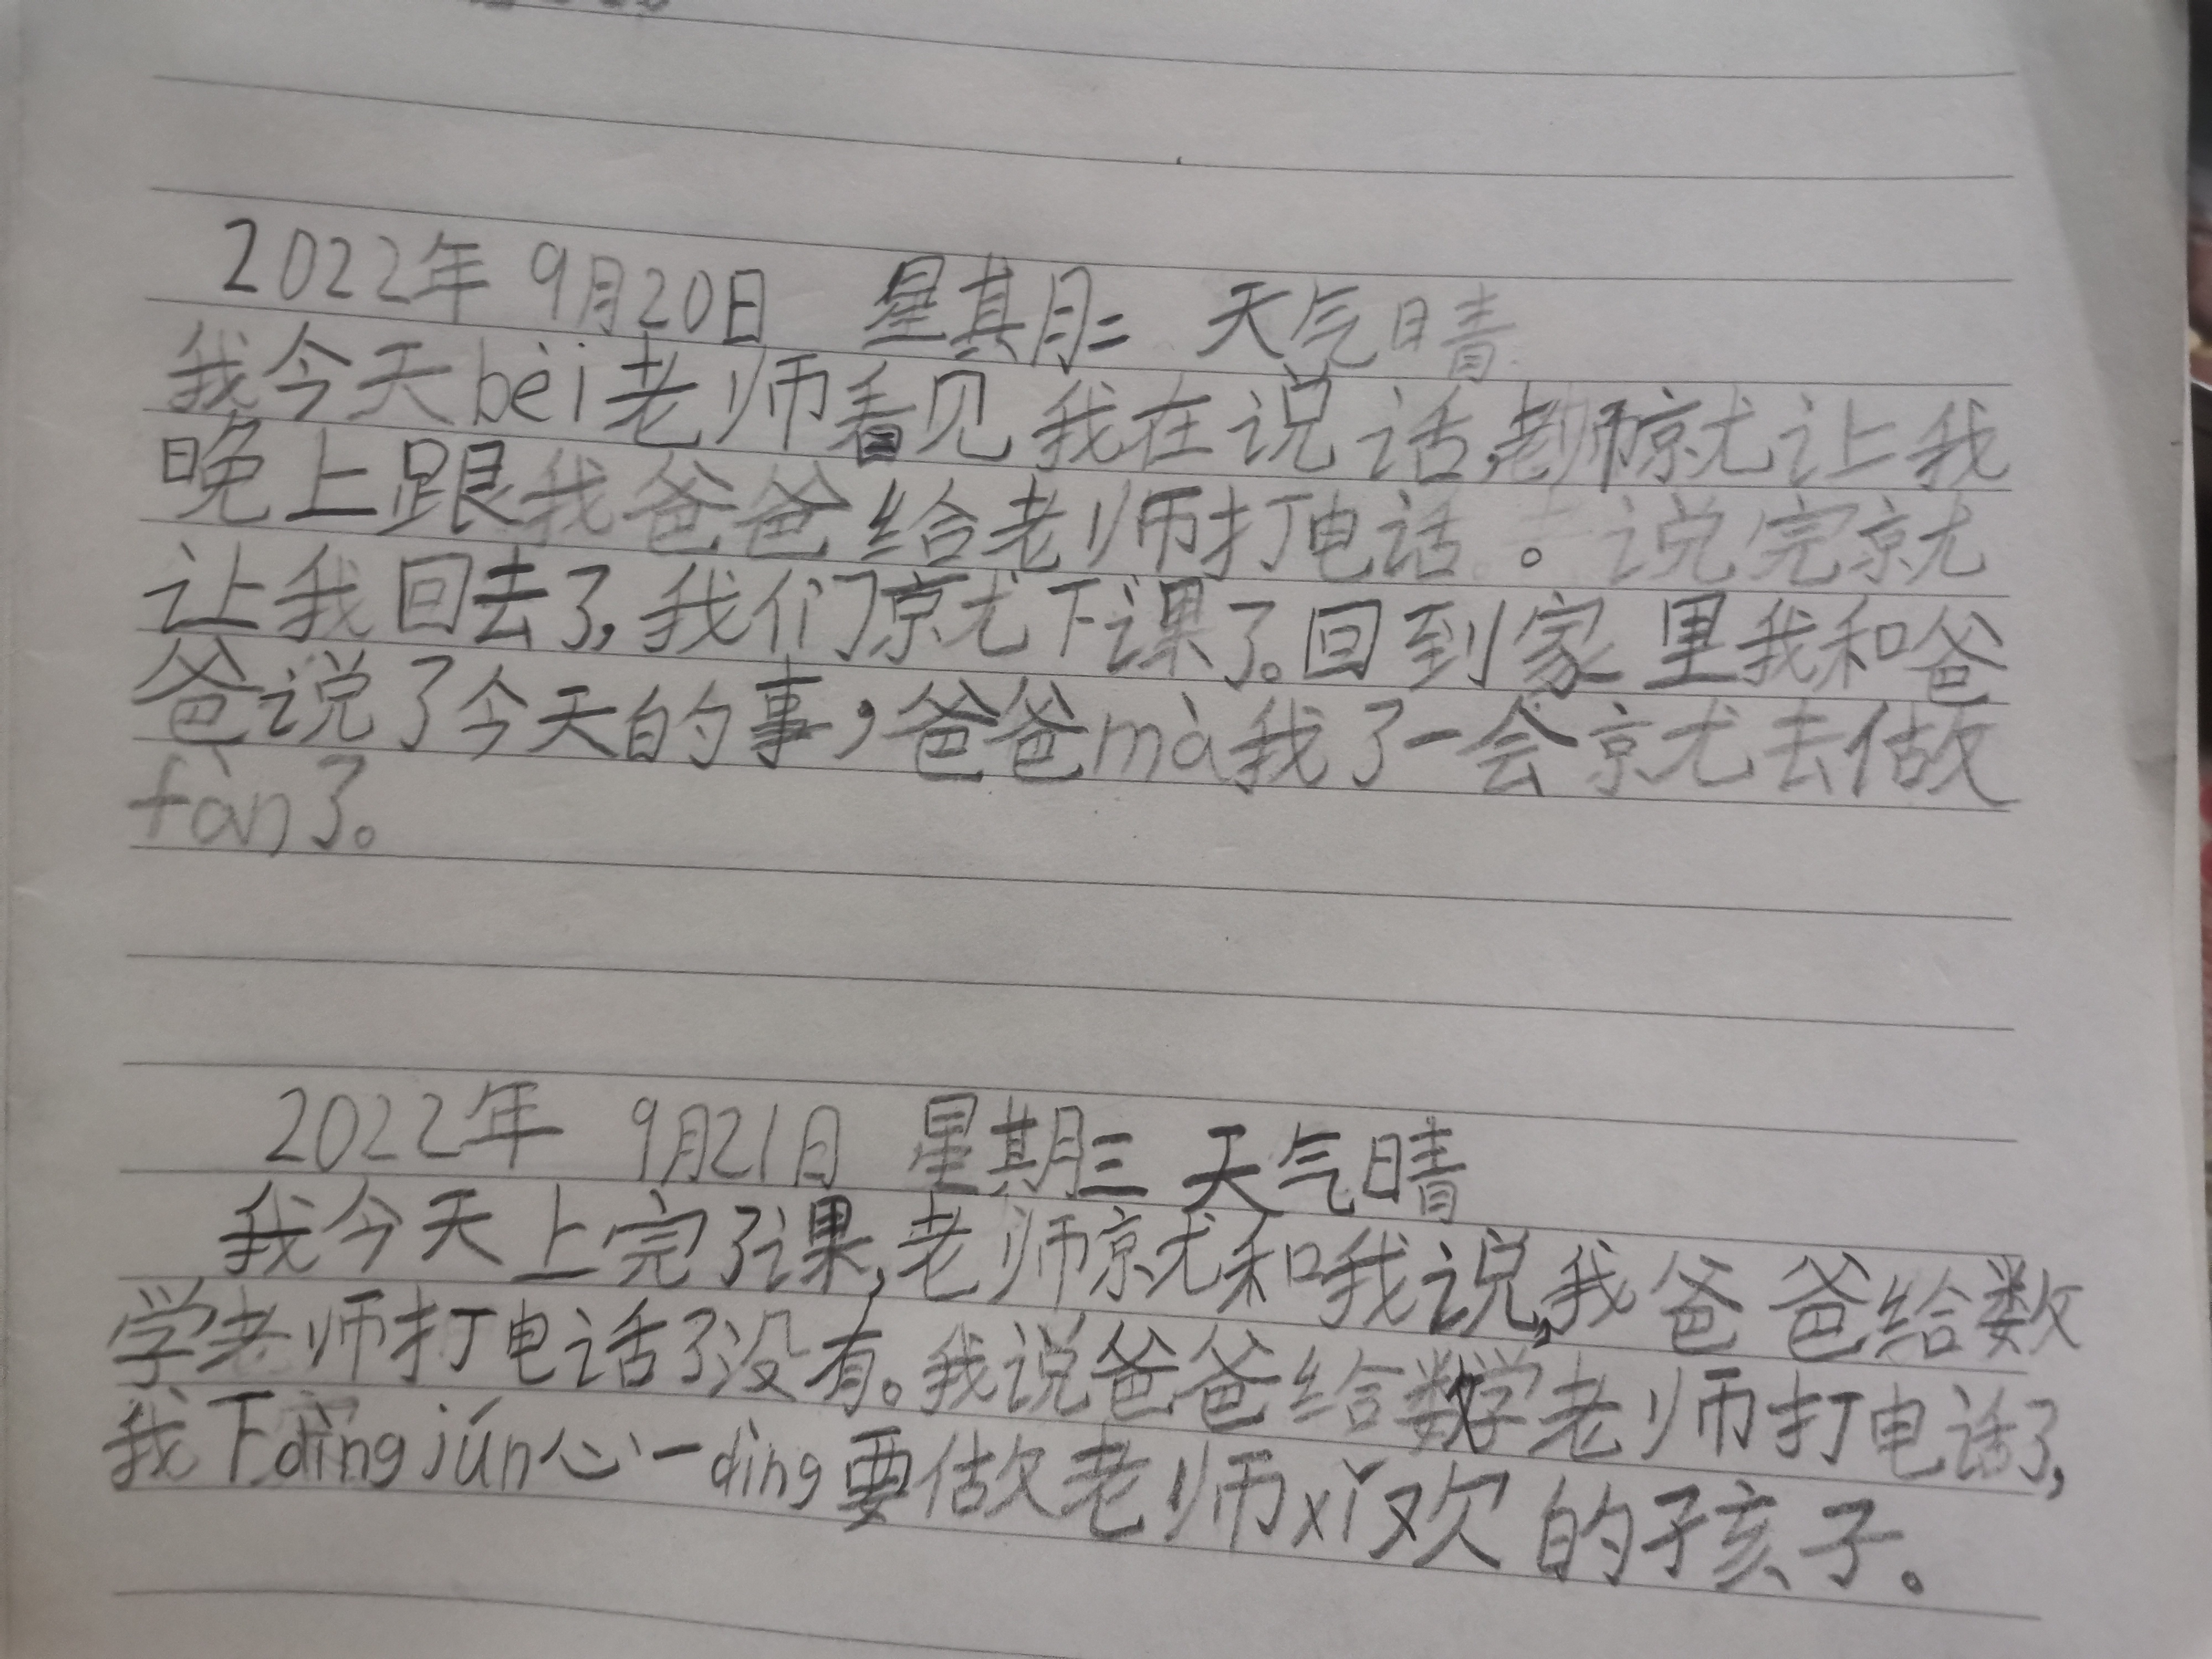 2022年 9月20日 星期二 天气晴
我今天bèi老师看见我在说话,老师就让我
晚上跟我爸爸给老师打电话。说完就
让我回去了,我们就下课了。回到家里我和爸
爸说了今天的事,爸爸mà我了一会就去做
fàn了。
2022年 9月21日 星期三 天气晴
我今天上完了课,老师就和我说,我爸爸给数
学老师打电话了没有。我说爸爸给数学老师打电话了,
我下dìng jún心一dìng要做老师xǐ欢的孩子。